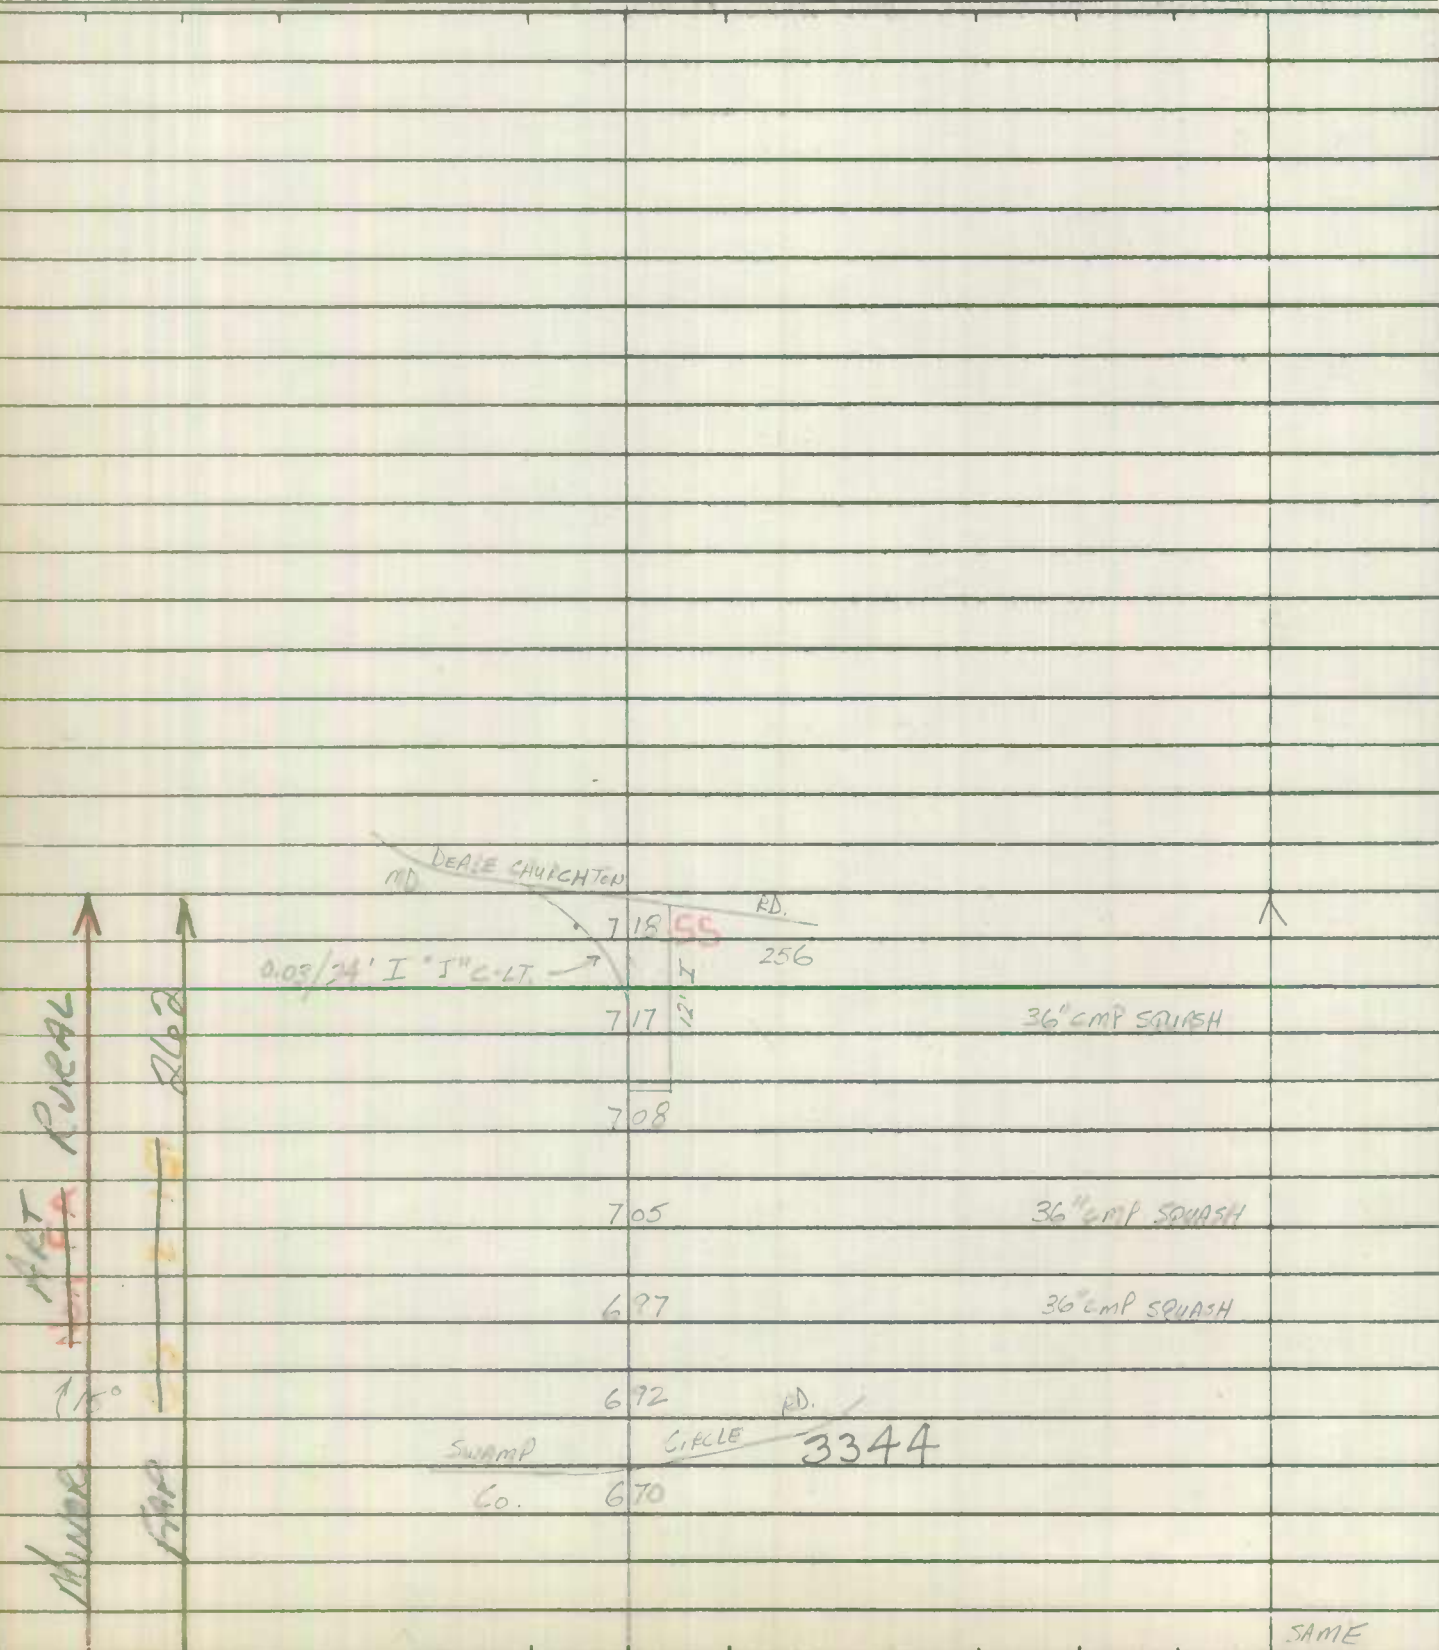 DEALE CHURCHTON
MD RD.
7 18 SS
256
0.03/24' I "J" C-LT.
12' I
7 17 36" CMP SQUASH
7 08
7 05 36" CMP SQUASH
6 97 36" CMP SQUASH
6 92 RD.
SWAMP CIRCLE 3344
Co. 6 70
SAME
MINOR ART RURAL
15°
FAP 262